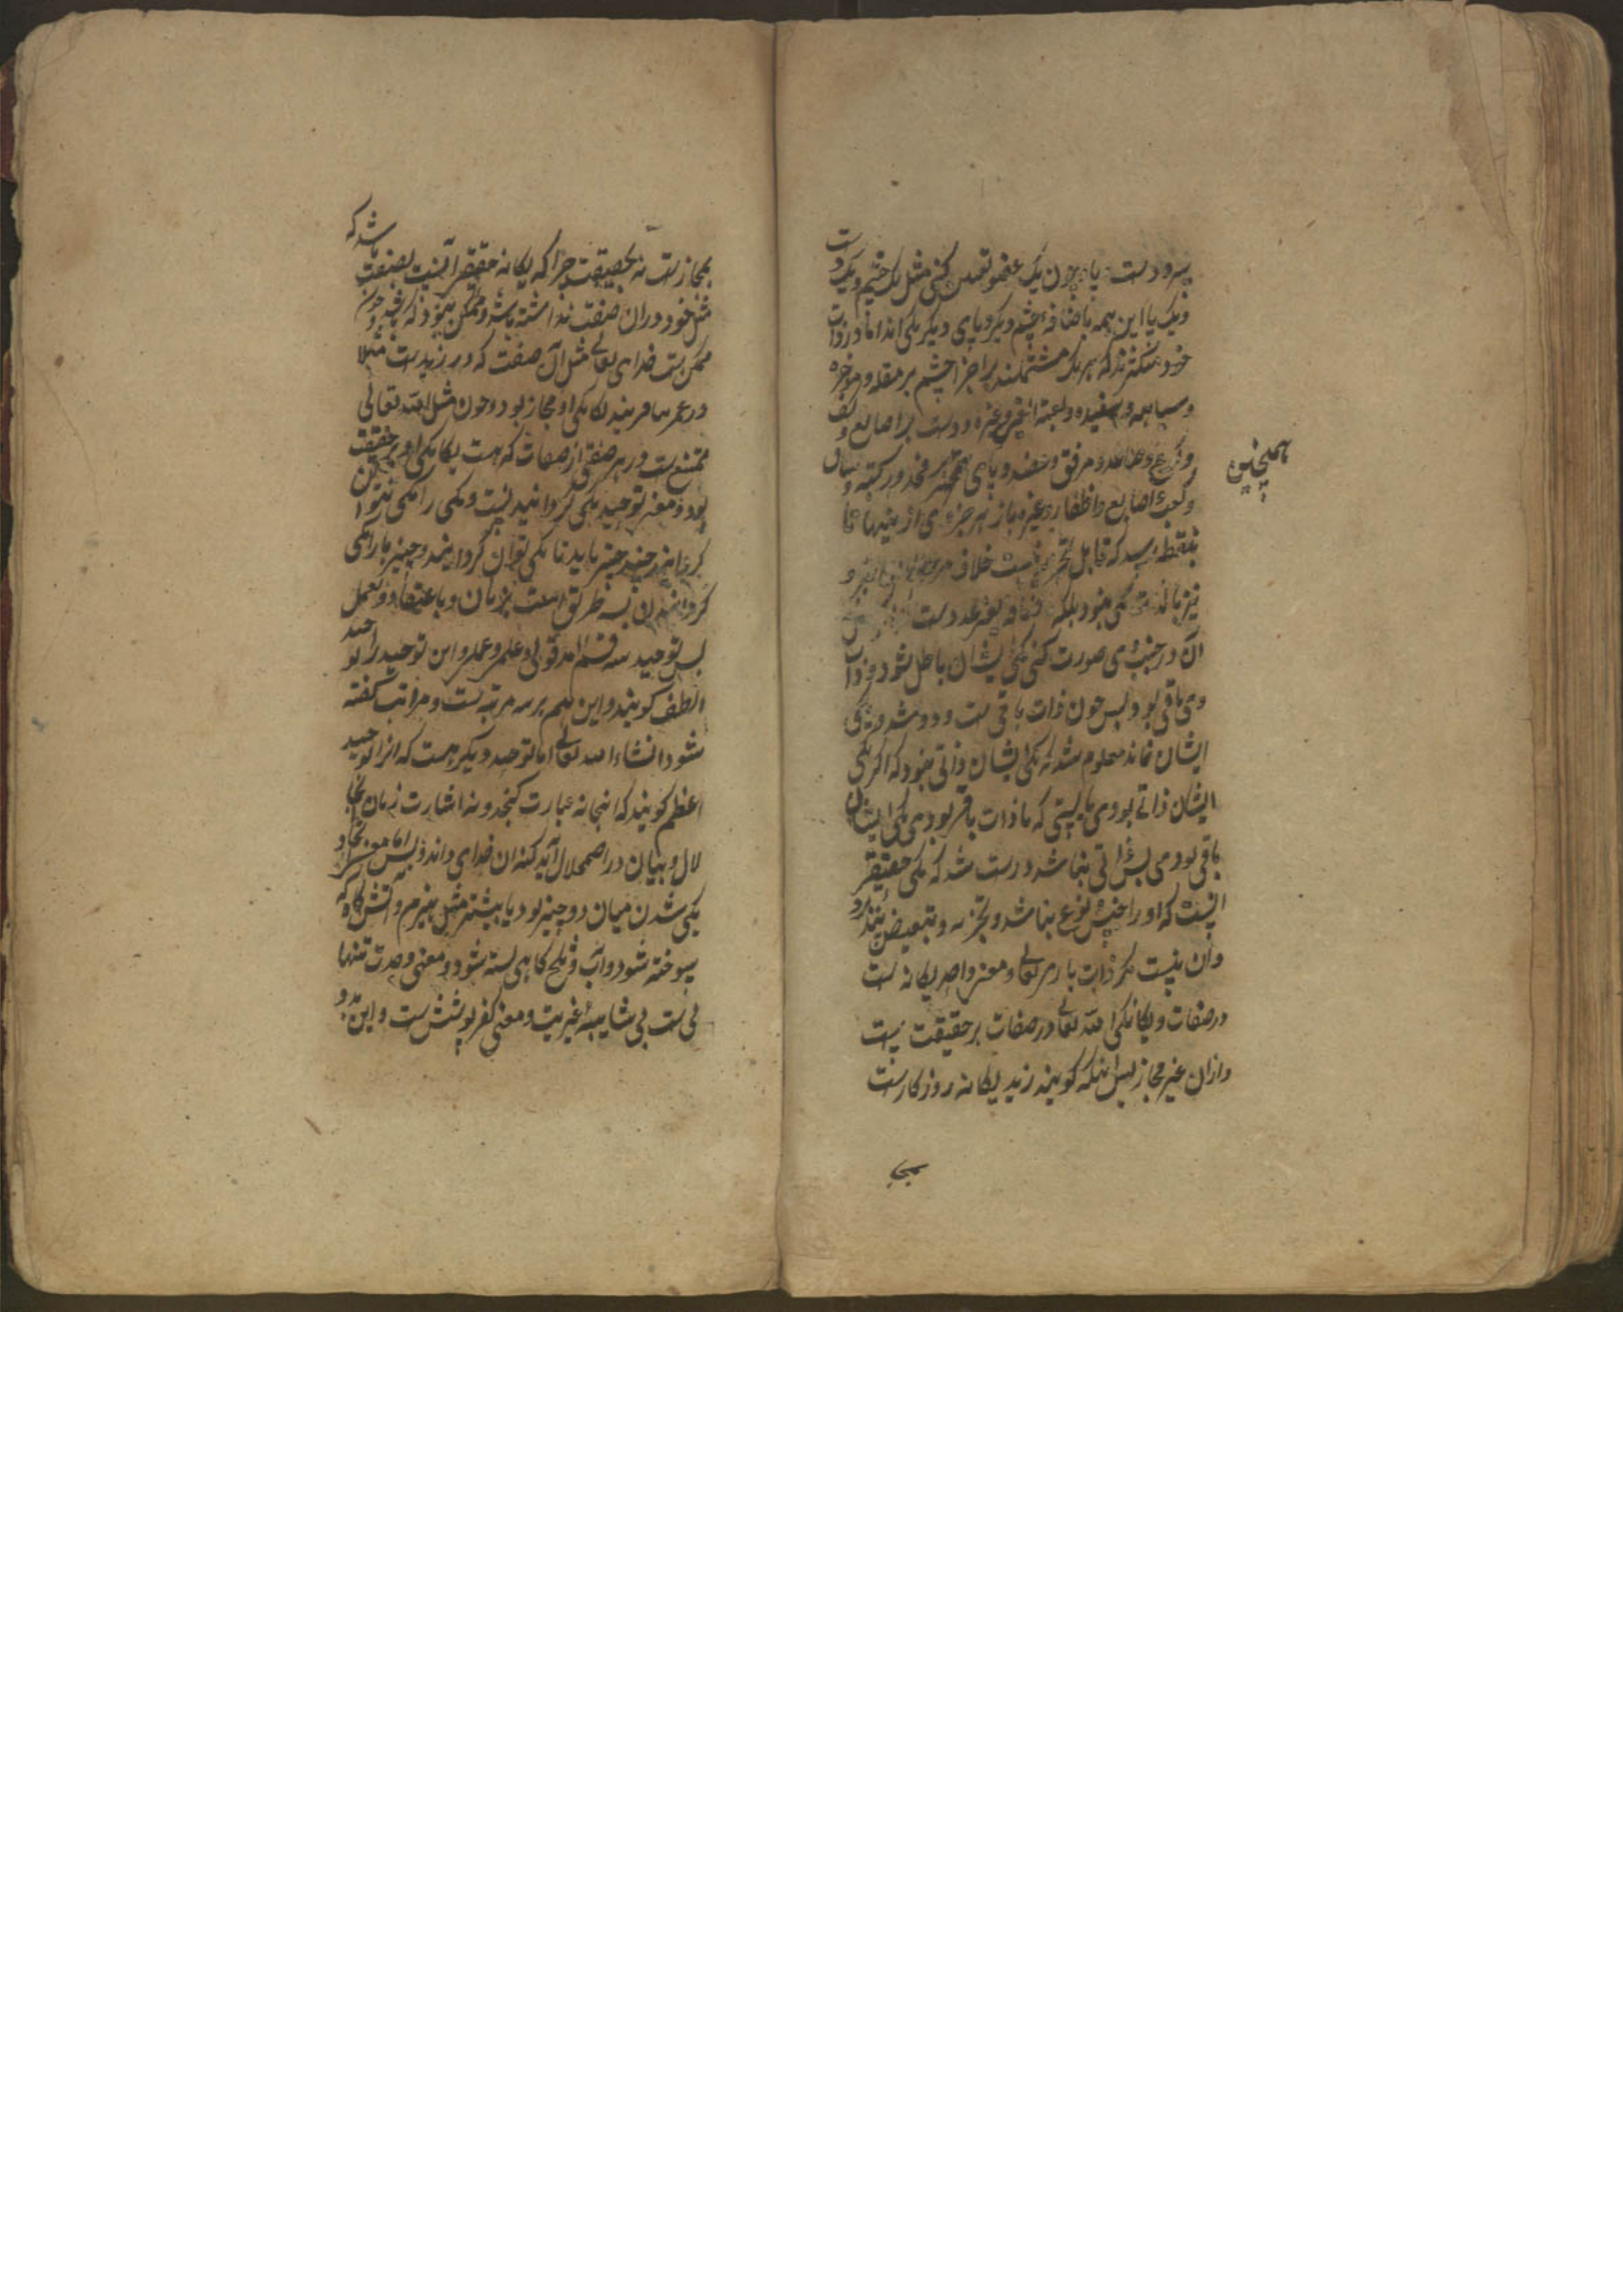 سر و دست و پا و چون یک عضو تعین کنی مثل یک چشم و یک دست
و یک پا این همه باضافهٔ چشم دیگر و پای دیگر یکی اند اما در ذوات
خود متکثرند که هر یک مشتملند بر اجزا چشم بر مقله و موخره
و سیاهه و سفیده و غیره و دست بر اصابع و کف
و مرفق و عضد و پای همچنین بر فخذ و رکبه و ساق
همچنین
و کعب و اصابع و اظفار و غیره باز هر جزوی ازینها تا
بنقطه رسد که قابل تجزی نیست خلاف
نیز بالذات یکی نبود بلکه عدد است
آن در جنب وی صورت کنی یکی ایشان باطل شود و ذوات
وی باقی بود پس چون ذات باقی است و دو شد و یکی
ایشان نماند معلوم شد که یکی ایشان ذاتی نبود که اگر یکی
ایشان ذاتی بودی بایستی که تا ذات باقی بودی یکی ایشان
باقی بودی پس ذاتی نباشد درست شد که یکی حقیقی
آنست که او را جنس و نوع نباشد و تجزیه و تبعیض نپذیرد
و آن نیست مگر ذات باری تعالی و معنی واحد یگانه است
در صفات و یگانگی الله تعالی در صفات بر حقیقت است
و ازان غیر مجاز پس اینکه گویند زید یگانه روزگارست
بمجا
بمجازست نه بحقیقت چرا که یگانه حقیقی آنست بصفت باشد که
مثل خود در ان صفت نداشته باشد و ممکن نبود که باشد و چون
ممکن است خدای تعالی مثل آن صفت که در زیدست مثلا
در عمر بیافریند یگانگی او مجاز بود و چون مثل الله تعالی
ممتنع ست در هر صفتی از صفات که هست یگانگی او بر حقیقت
بود و معنی توحید یکی گردانیدنست و یکی را یکی نتوان
گردانید چند چیز باید تا یکی توان گردانید و چیزها را یکی
گردانیدن بسه طریق است بزبان و باعتقاد و بعمل
پس توحید سه قسم آمد قولی و علمی و عملی و این توحید را توحید
الطف گویند و این هم بر سه مرتبه ست و مراتب گفته
شود انشاء الله تعالی اما توحید دیگر هست که آنرا توحید
اعظم گویند که آنجا نه عبارت گنجد و نه اشارت زبان آنجا
لال و بیان در اضمحلال آید کنه آن خدای داند و بس اما معنی اتحاد
یکی شدن میان دو چیز بود یا بیشتر مثل هیزم و آتش گاه که
سوخته شود و آب و ثلج گاهی بسته شود و معنی وحدت تنها
یی ست بی شایبهٔ غیریت و معنی کفر پوشش ست و این بر دو